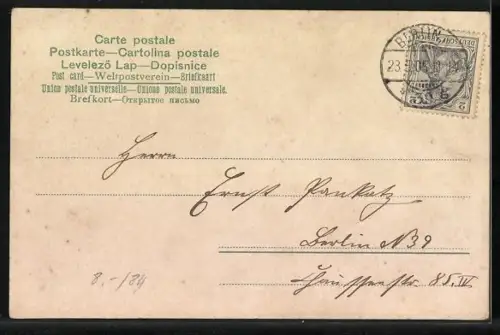 Carte postale
Postkarte—Cartolina postale
Levelező Lap—Dopisnice
Post card—Weltpostverein—Briefkaart
Union postale universelle—Unione postale universale.
Brefkort—Открытое письмо
BERLIN
39 b
2
Herrn
Ernst Pankatz
Berlin N 39
Chausseestr 85. IV
8.-/84